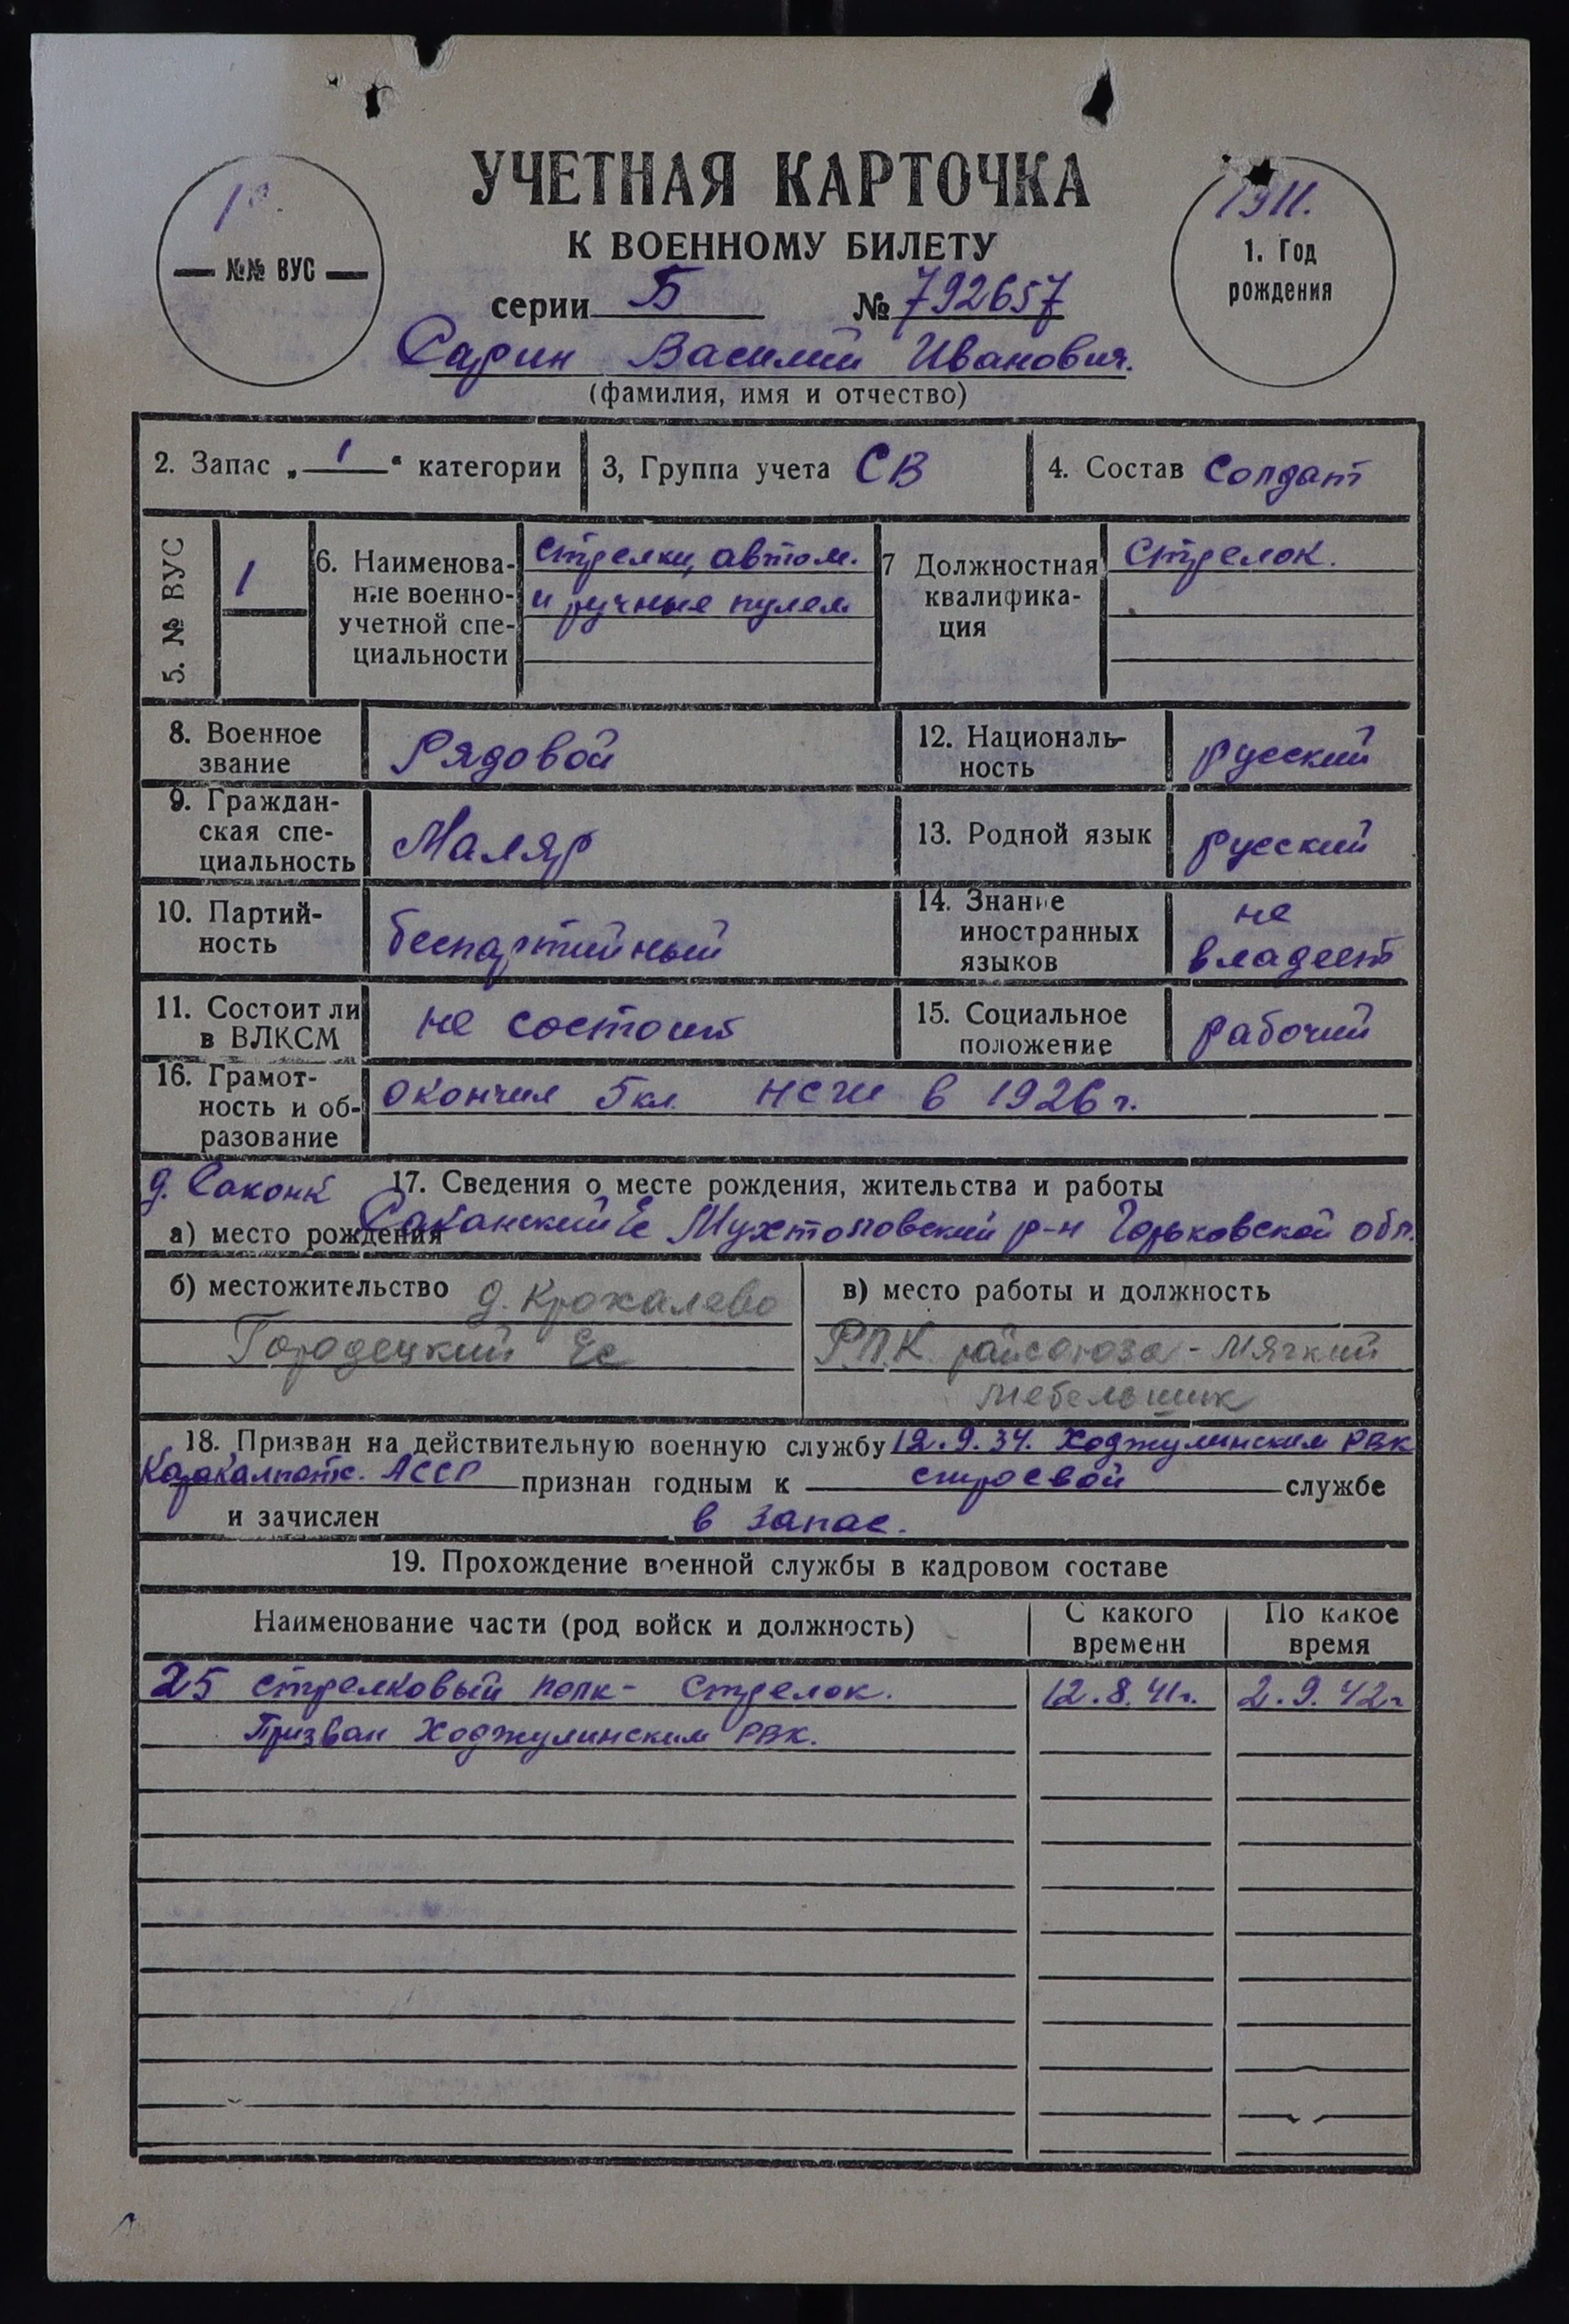 УЧЕТНАЯ КАРТОЧКА
К ВОЕННОМУ БИЛЕТУ
серии Б № 792657
Сарин Василий Иванович.
(фамилия, имя и отчество)
№№ ВУС
1911.
1. Год
рождения
2. Запас „ 1 “ категории
3, Группа учета СВ
4. Состав Солдат
5. № ВУС
1
6. Наименова-
ние военно-
учетной спе-
циальности
стрелки, автом.
и ручные пулем
7 Должностная
квалифика-
ция
Стрелок.
8. Военное
звание
Рядовой
12. Националь-
ность
русский
9. Граждан-
ская спе-
циальность
Маляр
13. Родной язык
русский
10. Партий-
ность
беспартийный
14. Знание
иностранных
языков
не
владеет
11. Состоит ли
в ВЛКСМ
не состоит
15. Социальное
положение
рабочий
16. Грамот-
ность и об-
разование
окончил 5 кл. НСШ в 1926 г.
д. Саконы
17. Сведения о месте рождения, жительства и работы
а) место рождения Саканский с/с Мухтоловский р-н Горьковской обл.
б) местожительство д. Крохалево
Городецкий с/с
в) место работы и должность
Р.П.К. райсоюза - Мягкий
мебельщик
18. Призван на действительную военную службу 12.9.34. Ходжулинским РВК
Каракалпакс. АССР признан годным к строевой службе
и зачислен в запас.
19. Прохождение военной службы в кадровом составе
Наименование части (род войск и должность)
С какого
времени
По какое
время
25 стрелковый полк - стрелок. 12.8.41г. 2.9.42г
Призван Ходжулинским РВК.